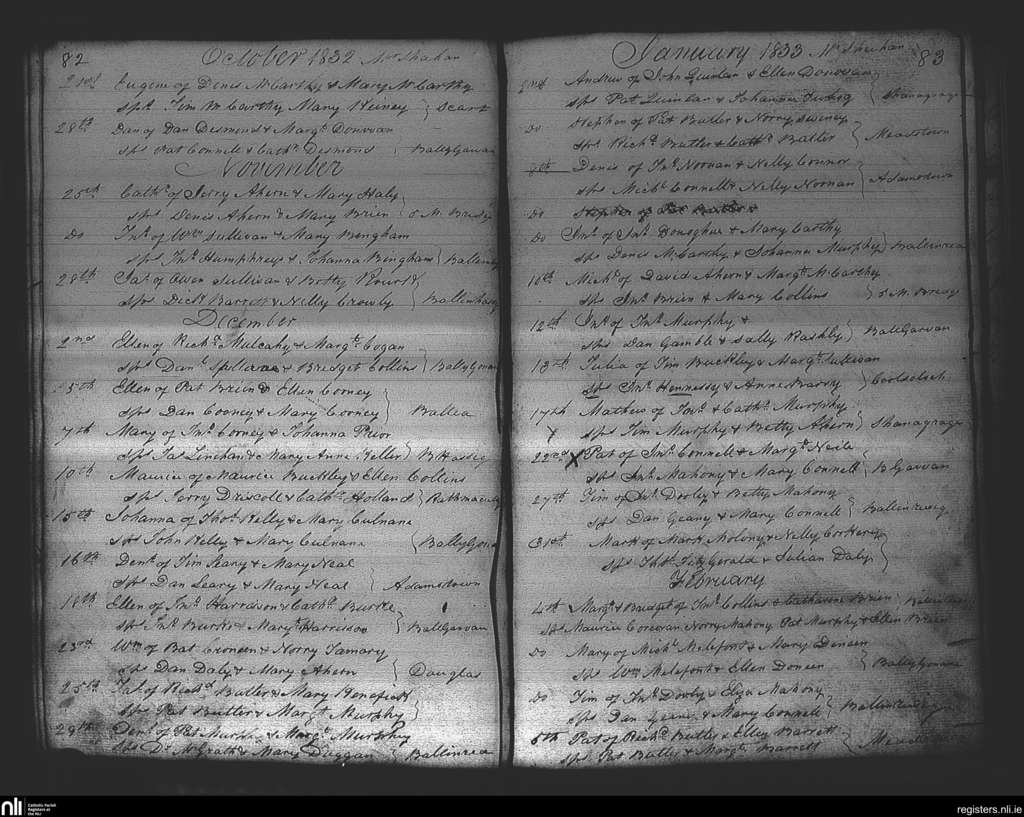 82 October 1832 Mr Shahan
Eugene of Denis McCarthy & Mary McCarthy
Sps. Tim McCarthy Mary Heiney } Scart
28th Dan of Dan Desmond & Margt. Donovan
Sps Pat Connell & Cathe. Desmond } BallyGarvan
November
25th Cathe. of Jerry Ahern & Mary Haly
Sps. Denis Ahern & Mary Brien
Do Jno. of Wm Sullivan & Mary Bingham
Sps. Jno. Humphreys & Johanna Bingham
28th of Owen Sullivan & Betty
Sps Dick Barrett & Nelly Crowly
December
2nd Ellen of Richd. Mulcahy & Margt. Cogan
Sps Danl. & Bridget Collins
5th Ellen of Pat Brien & Ellen Cooney
Sps Dan Cooney & Mary Cooney } Ballea
7th Mary of Jno. Cooney & Johanna Prior
Sps Jas Linehan & Mary Anne
10th Maurice of Maurice Buckley & Ellen Collins
Sps Jerry Driscoll & Cathe. Holland
15th Johanna of Thos. Kelly & Mary Culnane
Sps John Kelly & Mary Culnane
16th Denl. of Tim Leary & Mary Neal
Sps Dan Leary & Mary Neal } Adamstown
18th Ellen of Jno. Harrison & Cathe. Burke
Sps. Jno. Burke & Margt. Harrison } BallGarvan
23rd Wm of Bat Croneen & Norry
Sps Dan Daly & Mary Ahern } Douglas
25th of Richd. Butler & Mary
Sps Pat Butler & Margt. Murphy
29th Denl. of Pat & Margt. Murphy
Sps McGrath & Mary Duggan } Ballinrea
January 1833 Mr Sheehan 83
2nd Andrew of John Quinlan & Ellen Donovan
Sps Pat Quinlan & Johanna
Do Stephen of Pat Butler & Norry Sweeney
Sps Richd. Butler & Cathe. Butler } Meadstown
Denis of Jno. Noonan & Nelly Connor
Sps Michl. Connell & Nelly Noonan } Adamstown
Do Stephen of Pat Butler &
Do Jno. of Jno. Donoghue & Mary Carthy
Sps Denis McCarthy & Johanna Murphy } Ballinrea
10th Michl. of David Ahern & Margt. McCarthy
Sps Jno Brien & Mary Collins
12th Jno. of Jno. Murphy &
Sps Dan Gamble & Sally Rashly } BallGarvan
13th Julia of Tim Buckley & Margt. Sullivan
Sps Jno. Hennessy & Anne Barry
17th Mathew of & Cathe. Murphy
Sps Tim Murphy & Betty Ahern } Shanagraga
22nd X Pat of Jno. Connell & Margt. Neile
Sps Jno. Mahony & Mary Connell } BGarvan
27th Tim of Jno. Dooly & Betty Mahony
Sps Dan Geany & Mary Connell
31st Mark of Mark Molony & Nelly Corkery
Sps Thos. FitzGerald & Julian Daly
February
4th Margt. & Bridget of Jno. Collins & Catharine Brien
Sps Maurice Corcoran Norry Mahony Pat Murphy & Ellen Brien
Do Mary of Michl. Melefont & Mary Dineen
Sps Wm Melefont & Ellen Doneen
Do Tim of Jno. Dooly & Eliza Mahony
Sps Dan Geane & Mary Connell
Pat of Richd. Butler & Elley Barrett
Sps. Pat Butler & Margt. Barrett
nli
Catholic Parish
Registers at
the NLI
registers.nli.ie